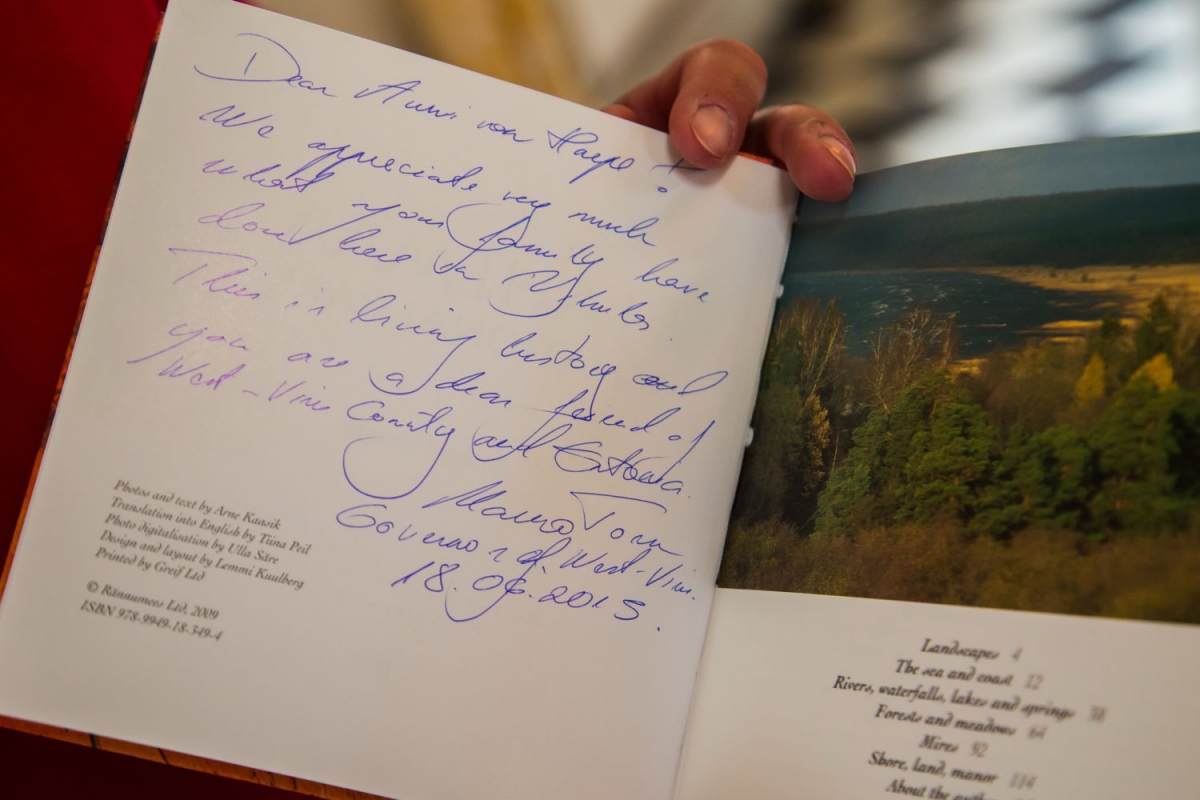 Dear Anni von Harpe!
We appreciate very much
what your family have
done here in Vihula.
This is living history and
you are a dear friend of
West-Viru County and Estonia.
Governor of West-Viru.
18.06.2015.
Photos and text by Arne Kaasik
Translation into English by Tiina Peil
Photo digitalisation by Ulla Säre
Design and layout by Lemmi Kuulberg
Printed by Greif Ltd
© Rännumees Ltd, 2009
ISBN 978-9949-18-349-4
Landscapes 4
The sea and coast 12
Rivers, waterfalls, lakes and springs 38
Forests and meadows 64
Mires 92
Shore, land, manor 114
About the